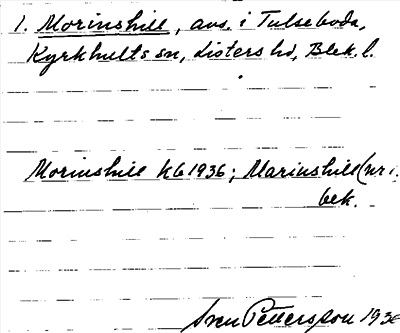 1. Morinshill, avs. i Tulseboda,
Kyrkhults sn, Listers hd, Blek. l.
Morinshill kb 1936; Marinshill (nr i
bek.
Sven Pettersson 1936